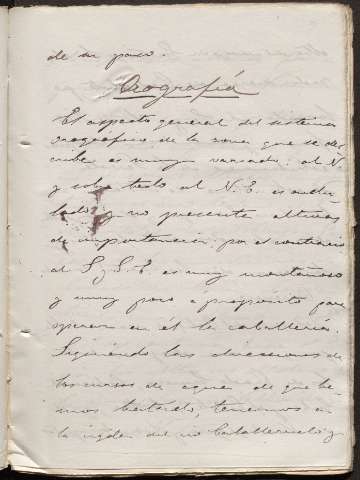 de su paso.
Orografía
El aspecto general del sistema
orografico de la zona que se des
cribe es muy variado: al N.
y sobre todo al N. E. es ondu
lado y no presenta alturas
de importancia, por el contrario
al S. y S. E. es muy montañoso
y muy poco a propósito para
operar en él la caballería.
Siguiendo las direcciones de
los cursos de agua de que he
mos tratado, tenemos en
la del rio